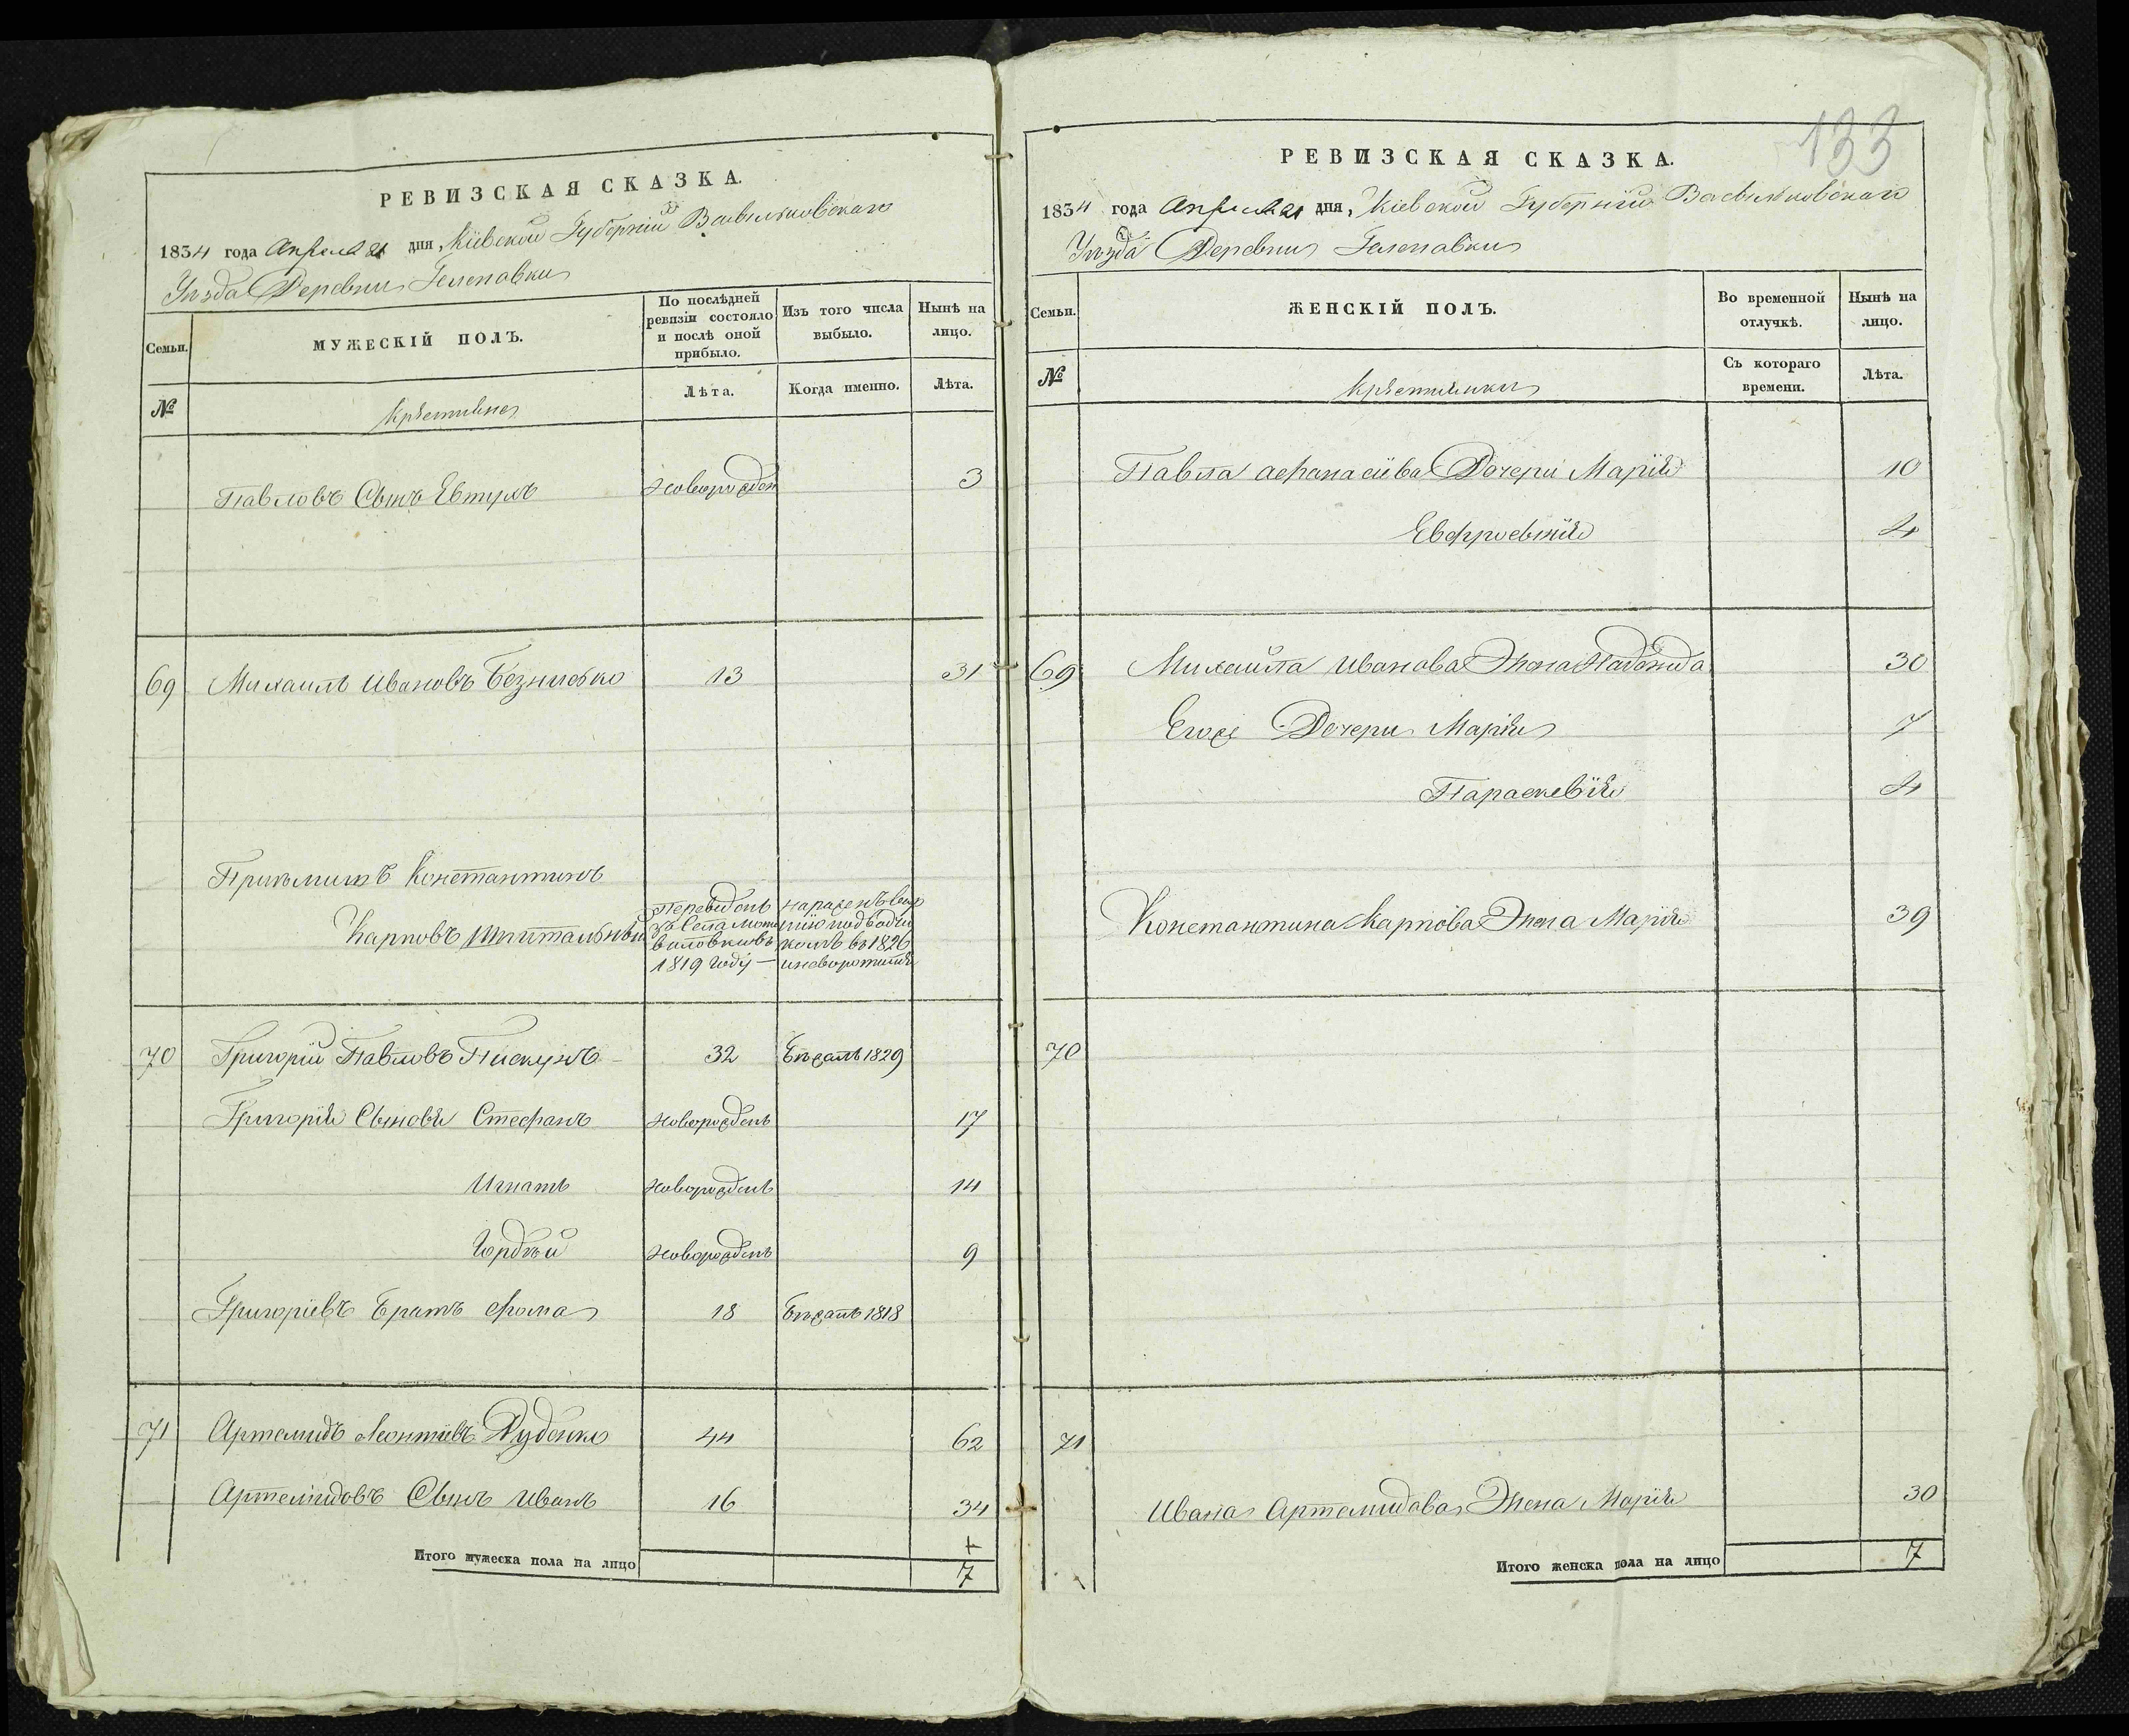 РЕВИЗСКАЯ СКАЗКА.
1834 года Апреля 21 дня, Кіевской Губерніи Васильковскаго
Уѣзда Деревни Гелеповки
Семьи.
МУЖЕСКІЙ ПОЛЪ.
По послѣдней ревизіи состояло и послѣ оной прибыло.
Изъ того числа выбыло.
Нынѣ на лицо.
№
Крестяне
Лѣта.
Когда именно.
Лѣта.
Павловъ Сынъ Евтухъ новорожден 3
69 Михаилъ Ивановъ 13 31
Приймышъ Константинъ
Карповъ Шпитальный
Переведенъ
изъ Села
1819 году —
въ 1826
70 Григорій Павловъ Пискунъ 32 Бѣжалъ 1829
Григорія Сыновя Стефанъ новорожденъ 17
Игнатъ новорожденъ 14
Гордѣй новорожденъ 9
Григоріевъ Братъ Фома 18 Бѣжалъ 1818
71 Артемидъ Леонтіевъ Дуденко 44 62
Артемидовъ Сынъ Иванъ 16 34
Итого мужеска пола на лицо 7
133
РЕВИЗСКАЯ СКАЗКА.
1834 года Апреля 21 дня, Кіевской Губерніи Васильковскаго
Уѣзда Деревни Гелеповки
Семьи.
ЖЕНСКІЙ ПОЛЪ.
Во временной отлучкѣ.
Нынѣ на лицо.
№
Крестянки
Съ котораго времени.
Лѣта.
Павла Афанасіева Дочери Марія 10
Евфросинія 4
69 Михайла Иванова Жена Надежда 30
Егоже Дочери Марія 7
Параскевія 4
Константина Карпова Жена Марія 39
70
71
Ивана Артемидова Жена Марія 30
Итого женска пола на лицо 7